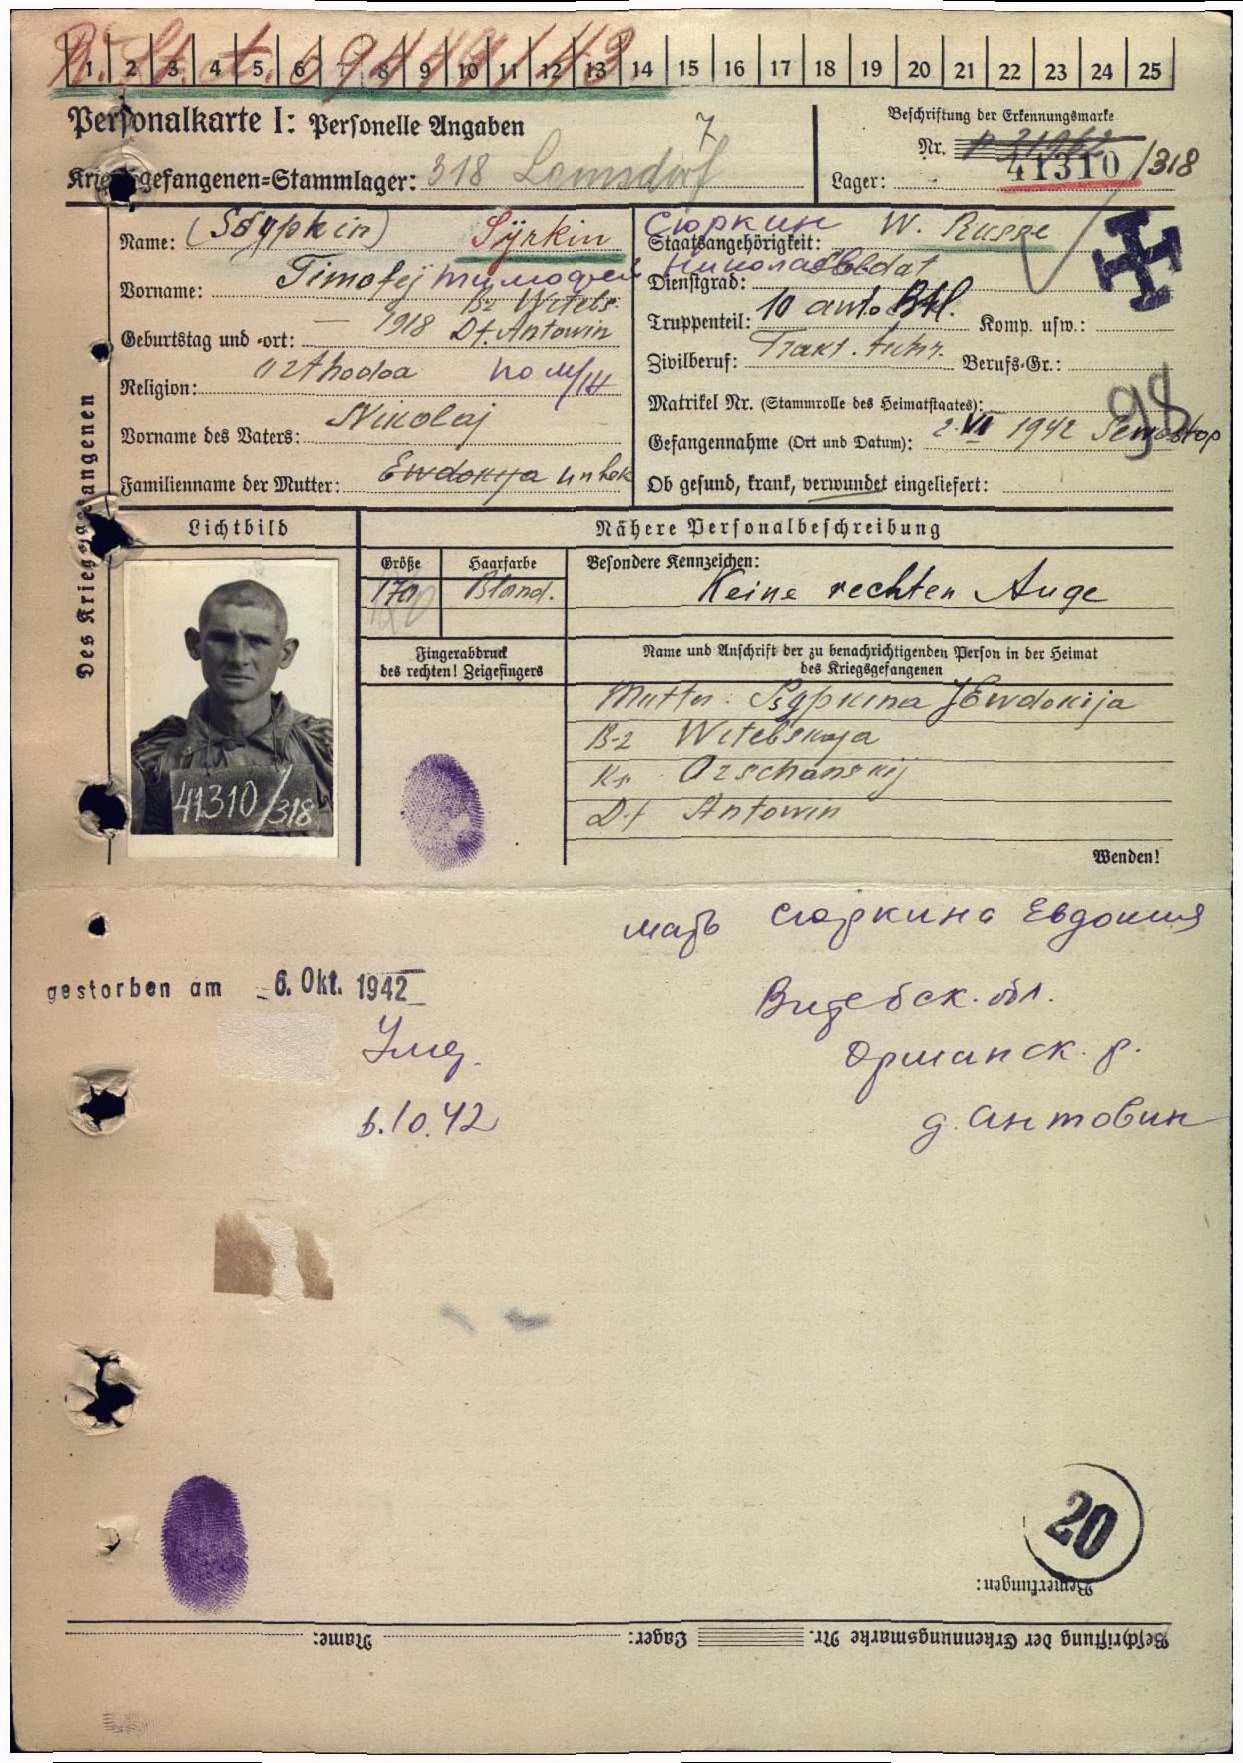 1 2 3 4 5 6 7 8 9 10 11 12 13 14 15 16 17 18 19 20 21 22 23 24 25
Personalkarte I: Personelle Angaben
7
Beschriftung der Erkennungsmarke
Nr. 41310/318
Kriegsgefangenen-Stammlager: 318 Lamsdorf
Lager:
Des Kriegsgefangenen
Name: Syrkin
Сюркин
Staatsangehörigkeit: W. Russe
Vorname: Timofej Тимофей Николаев
Dienstgrad: Soldat
Geburtstag und -ort: — 1918 Bz Witebs. Df. Antowin
Truppenteil: 10 auto Btl. Komp. usw.:
Religion: orthodox
Zivilberuf: Trakt. Berufs-Gr.:
Vorname des Vaters: Nikolaj
Matrikel Nr. (Stammrolle des Heimatstaates):
98
Gefangennahme (Ort und Datum): 2. VI 1942
Familienname der Mutter: Ewdokija unbek
Ob gesund, krank, verwundet eingeliefert:
Lichtbild
Nähere Personalbeschreibung
Größe
170
Haarfarbe
Blond.
Besondere Kennzeichen:
Keine rechten Auge
Fingerabdruck
des rechten! Zeigefingers
Name und Anschrift der zu benachrichtigenden Person in der Heimat
des Kriegsgefangenen
Mutter: Ewdokija
Witebskaja
Kr. Orschanskij
Df Antowin
41310/318
Wenden!
мать Сюркина Евдокия
gestorben am 6. Okt. 1942
Витебск. обл.
Умер.
Оршанск. р.
6.10.42
д. Антовин
20
Bemerkungen:
Beschriftung der Erkennungsmarke Nr. Lager: Name: